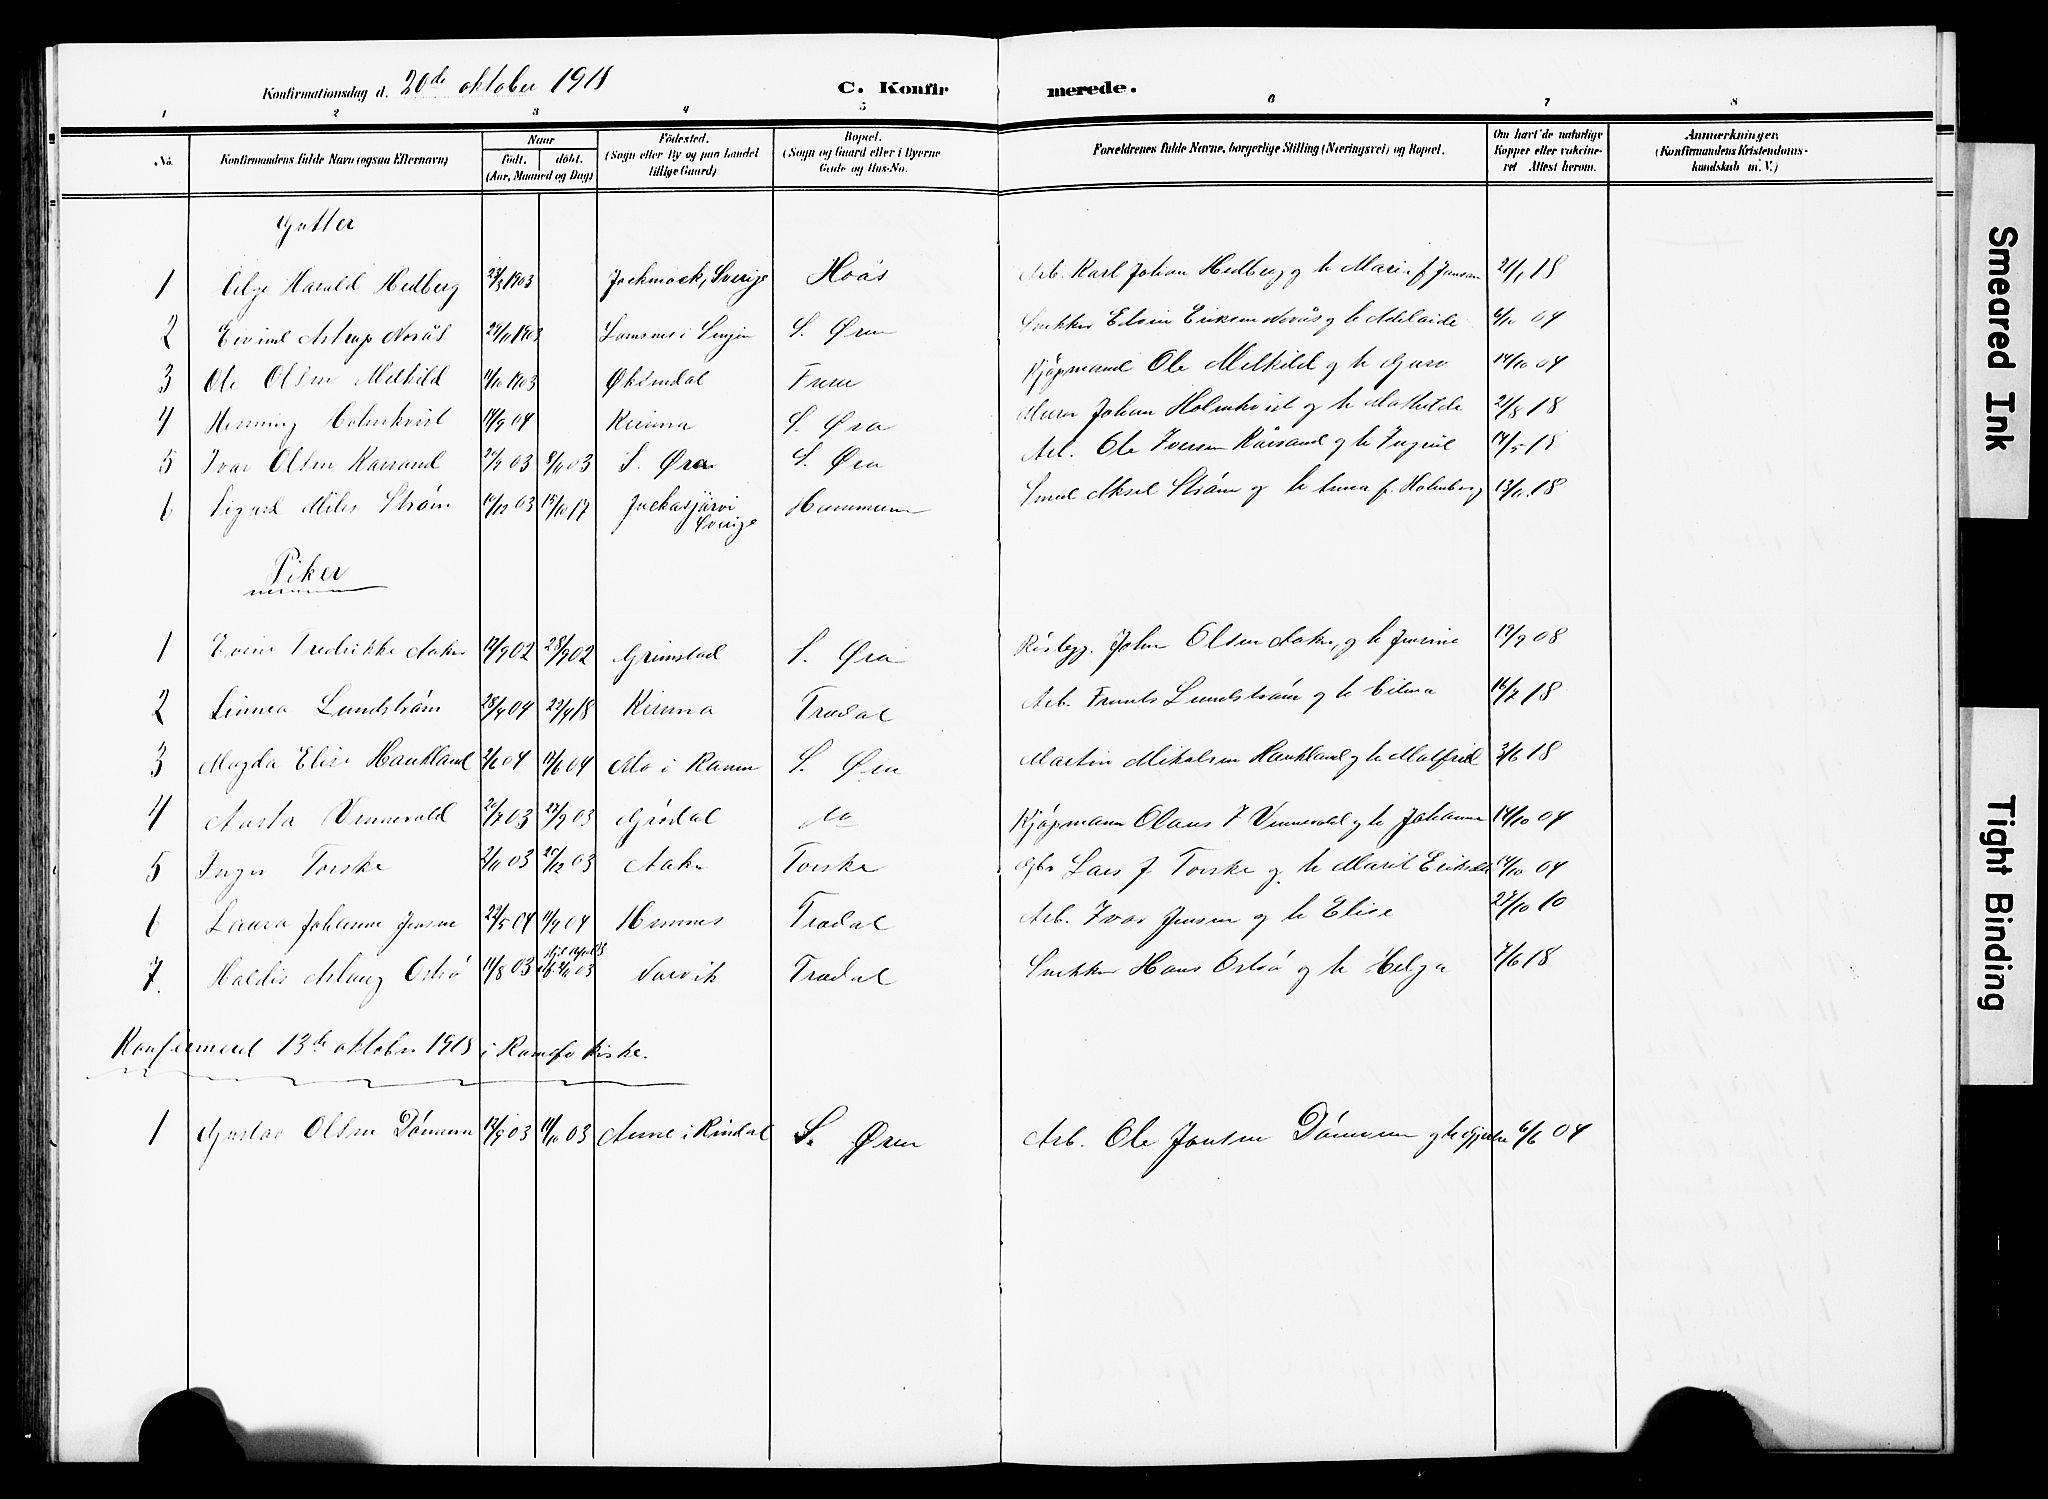 Konfirmationsdag d. 20de oktober 1918 C. Konfirmerede.
1 2 3 4 5 6 7 8
No. Konfirmandens fulde Navn (ogsaa Efternavn) Naar født. døbt. (Aar, Maaned og Dag) Fødested. (Sogn eller By og paa Landet tillige Gaard) Bopæl. (Sogn og Gaard eller i Byerne Gade og Hus-No. Forældrenes fulde Navne, borgerlige Stilling (Næringsvei) og Bopæl. Om havt de naturlige Kopper eller vakcineret Attest herom. Anmærkninger. (Konfirmandens Kristendomskundskab m. V.)
Gutter
1 Helge Harald Hedberg 1903 Jockmock, Sverige Hoås Arb. Karl Johan Hedberg og h Maria f. Jansen 21/1 18
2 Eivind Astrup Norås 1903 i Senjen S. Øren Snekker Edvin Eriksen Norås og h Adelaide 04
3 Ole Olsen Melkild 11/10 1903 Øksendal Furu Kjøpmand Ole Melkild og h Guro 14/10 04
4 Henning Holmkvist 14/9 04 Kiruna S. Øra Murer Johan Holmkvist og h Mathilde 21/8 18
5 Ivar Olsen Kårsand 03 8/11 03 S. Øra S. Øra Arb. Ole Iversen Kårsand og h Ingrid 14/5 18
6 Sigurd Nils Strøm 10/12 03 15/10 17 Juckasjärvi Sverige Hammeren Smed Aksel Strøm og h Anna f. Holmberg 13/11 18
Piker
1 Evine Fredrikke Aaker 12/9 02 28/9 02 Grimstad S. Øra Johan Olsen Aaker, og h Juverine 19/9 08
2 Linnea Lundstrøm 28/4 04 22/4 18 Kiruna Trædal Arb. Frants Lundstrøm og h Hilma 16/2 18
3 Magda Elise Haukland 2/6 04 12/6 04 Mo i Ranen S. Øra Martin Mikalsen Haukland og h Malfrid 3/6 18
4 Aasta Vennevold 20/7 03 27/9 03 Grødal do Kjøpmann Olaus J Vennevold og h Johanna 14/10 04
5 Inger Torske 2/11 03 20/12 03 Aaker Torske Gbr Lars J Torske og h Marit Eriksdtr 14/10 04
6 Laura Johanne Jensen 22/5 04 11/9 04 Hemnes Trædal Arb. Ivar Jensen og h Elise 27/10 10
7. Haldis Aslaug Ostrø 11/8 03 03 Narvik Trædal Snekker Hans Ostrø og h Helga 7/6 18
Konfirmeret 13de oktober 1918 i Romfo kirke.
1 Gustav Olsen Dønnem 12/9 03 11/10 03 Aune i Rindal S. Øren Arb. Ole Jonsen Dønnem og h Gjertru 6/6 04
Smeared Ink
Tight Binding